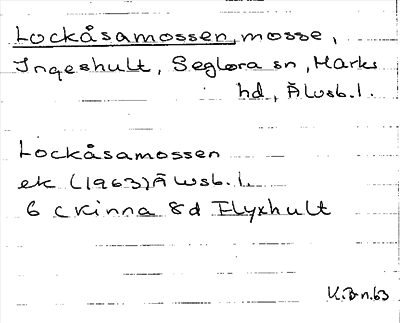 Lockåsamossen, mosse,
Ingeshult, Seglora sn, Marks
hd, Älvsb.l.
Lockåsamossen
ek (1963) Älvsb.l.
6 c Kinna 8d Flyxhult
K.B-n.63